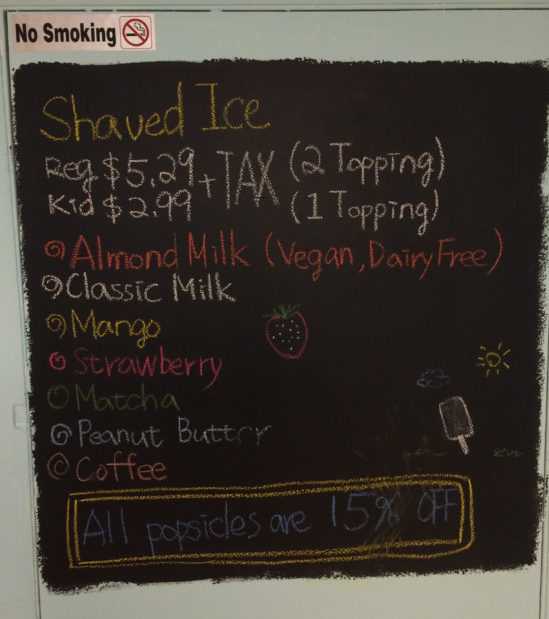 No Smoking
Shaved Ice
Reg. $5.29 + TAX (2 Topping)
Kid $2.99 (1 Topping)
Almond Milk (Vegan, Dairy Free)
Classic Milk
Mango
Strawberry
Matcha
Peanut Butter
Coffee
All popsicles are 15% OFF